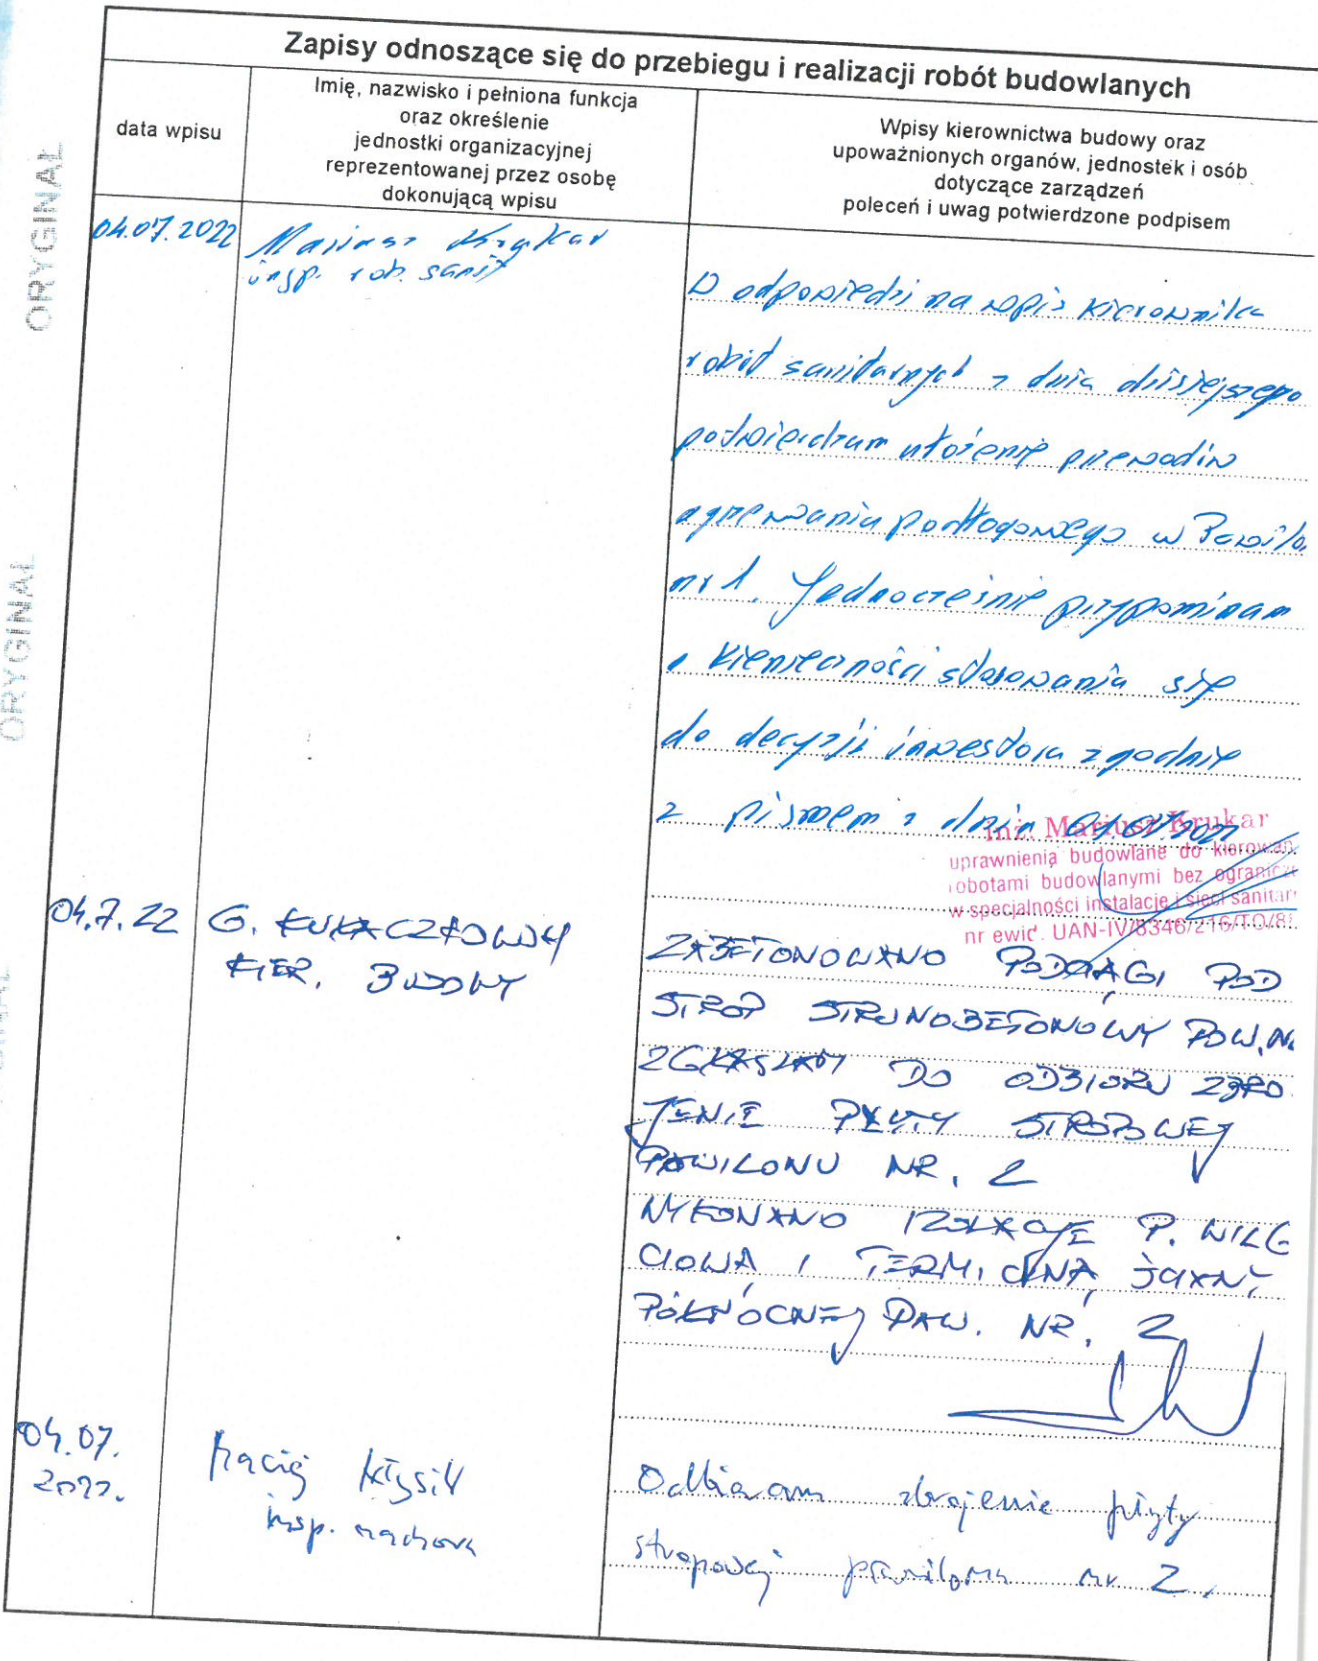 Zapisy odnoszące się do przebiegu i realizacji robót budowlanych
data wpisu
Imię, nazwisko i pełniona funkcja
oraz określenie
jednostki organizacyjnej
reprezentowanej przez osobę
dokonującą wpisu
Wpisy kierownictwa budowy oraz
upoważnionych organów, jednostek i osób
dotyczące zarządzeń
poleceń i uwag potwierdzone podpisem
ORYGINAŁ
ORYGINAŁ
04.07.2022
Mariusz Krukar
insp. rob. sanit
W odpowiedzi na wpis kierownika
robót sanitarnych z dnia dzisiejszego
potwierdzam ułożenie przewodów
ogrzewania podłogowego w Pawilo.
nr 1. Jednocześnie przypominam
o konieczności stosowania się
do decyzji inwestora zgodnie
z pismem z dnia
inż. Mariusz Krukar
uprawnienia budowlane do kierowan.
robotami budowlanymi bez ogranicze
w specjalności instalacje i sieci sanitarn
nr ewid. UAN-IV/8346/216/TO/8
04.7.22
G.
KIER. BUDOWY
ZABETONOWANO PODCIĄGI POD
STROP STRUNOBETONOWY PAW.N.
ZGŁASZAM DO ODBIORU ZBRO
JENIE PŁYTY STROPOWEJ
PAWILONU NR. 2
WYKONANO IZOLACJE P. WILG
CIOWĄ I TERMICZNĄ ŚCIANY
PÓŁNOCNEJ PAW. NR. 2
04.07.
2022.
Maciej
insp. nadzoru
Odbieram zbrojenie płyty
stropowej pawilonu nr 2.